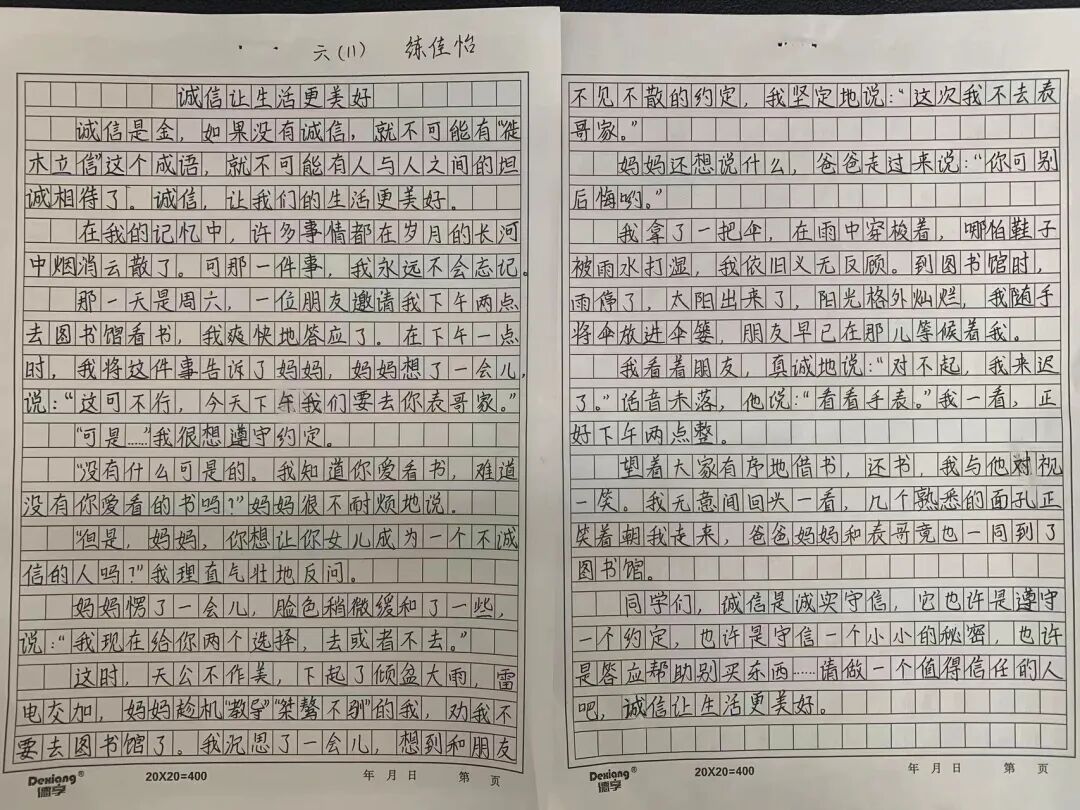 六(11) 练佳怡
诚信让生活更美好
诚信是金，如果没有诚信，就不可能有“徙
木立信”这个成语，就不可能有人与人之间的坦
诚相待了。诚信，让我们的生活更美好。
在我的记忆中，许多事情都在岁月的长河
中烟消云散了。可那一件事，我永远不会忘记。
那一天是周六，一位朋友邀请我下午两点
去图书馆看书，我爽快地答应了。在下午一点
时，我将这件事告诉了妈妈，妈妈想了一会儿，
说：“这可不行，今天下午我们要去你表哥家。”
“可是……”我很想遵守约定。
“没有什么可是的。我知道你爱看书，难道
没有你爱看的书吗？”妈妈很不耐烦地说。
“但是，妈妈，你想让你女儿成为一个不诚
信的人吗？”我理直气壮地反问。
妈妈愣了一会儿，脸色稍微缓和了一些，
说：“我现在给你两个选择，去或者不去。”
这时，天公不作美，下起了倾盆大雨，雷
电交加，妈妈趁机“教导”“桀骜不驯”的我，劝我不
要去图书馆了。我沉思了一会儿，想到和朋友
Dexiang®
德字
20X20=400
年 月 日 第 页
不见不散的约定，我坚定地说：“这次我不去表
哥家。”
妈妈还想说什么，爸爸走过来说：“你可别
后悔哟。”
我拿了一把伞，在雨中穿梭着，哪怕鞋子
被雨水打湿，我依旧义无反顾。到图书馆时，
雨停了，太阳出来了，阳光格外灿烂，我随手
将伞放进伞篓，朋友早已在那儿等候着我。
我看着朋友，真诚地说：“对不起，我来迟
了。”话音未落，他说：“看看手表。”我一看，正
好下午两点整。
望着大家有序地借书，还书，我与他对视
一笑。我无意间回头一看，几个熟悉的面孔正
笑着朝我走来，爸爸妈妈和表哥竟也一同到了
图书馆。
同学们，诚信是诚实守信，它也许是遵守
一个约定，也许是守信一个小小的秘密，也许
是答应帮助别买东西……请做一个值得信任的人
吧，诚信让生活更美好。
Dexiang®
德字
20X20=400
年 月 日 第 页